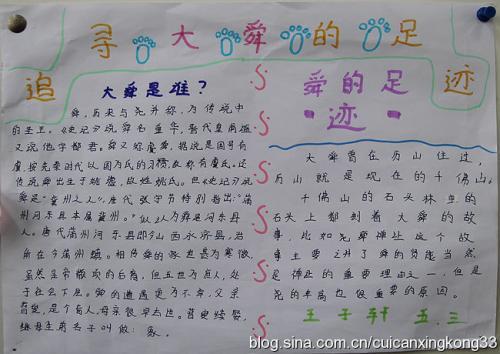 追寻大舜的足迹
大舜是谁？
舜，历来与尧并称，为传说中
的圣王。《史记》说舜名重华，晋代皇甫谧
又说他字都君。舜又称虞舜，据说是国号有
虞，按先秦时代以国为氏的习惯，故称有虞氏。还
传说舜出生于姚墟，故姓姚氏。但《史记》又说
舜是"冀州之人"，唐代张守节特别指出："蒲
州河东县本属冀州。"似认为舜是河东县
人。唐代蒲州河东县即今山西永济县，治
所在今蒲州镇。相传舜的家世甚为寒微，
虽然是帝颛顼的后裔，但五世为庶人，处
于社会下层。舜的遭遇更为不幸，父亲
瞽叟，是个盲人，母亲很早去世。瞽叟续娶，
继母生弟名子叫做：象。
舜的足
迹
大舜曾在历山住过，
历山就是现在的千佛山。
千佛山的石头林里的
石头上都刻着大舜的故
事，比如尧舜禅让这个故
事主要讲了舜的贤能当然
是禅让的重要理由之一，但是
尧的年高也很重要的原因。
王子轩 五.三
blog.sina.com.cn/cuicanxingkong33